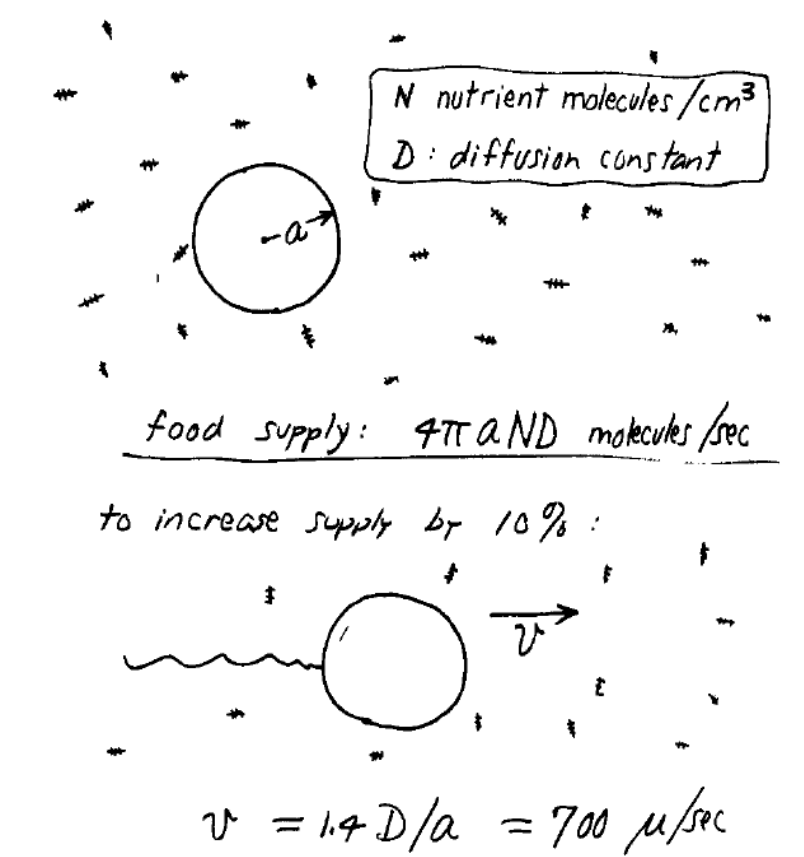 N nutrient molecules/cm³
D : diffusion constant
a
food supply: 4π a N D molecules/sec
to increase supply by 10% :
v
v = 1.4 D/a = 700 μ/sec